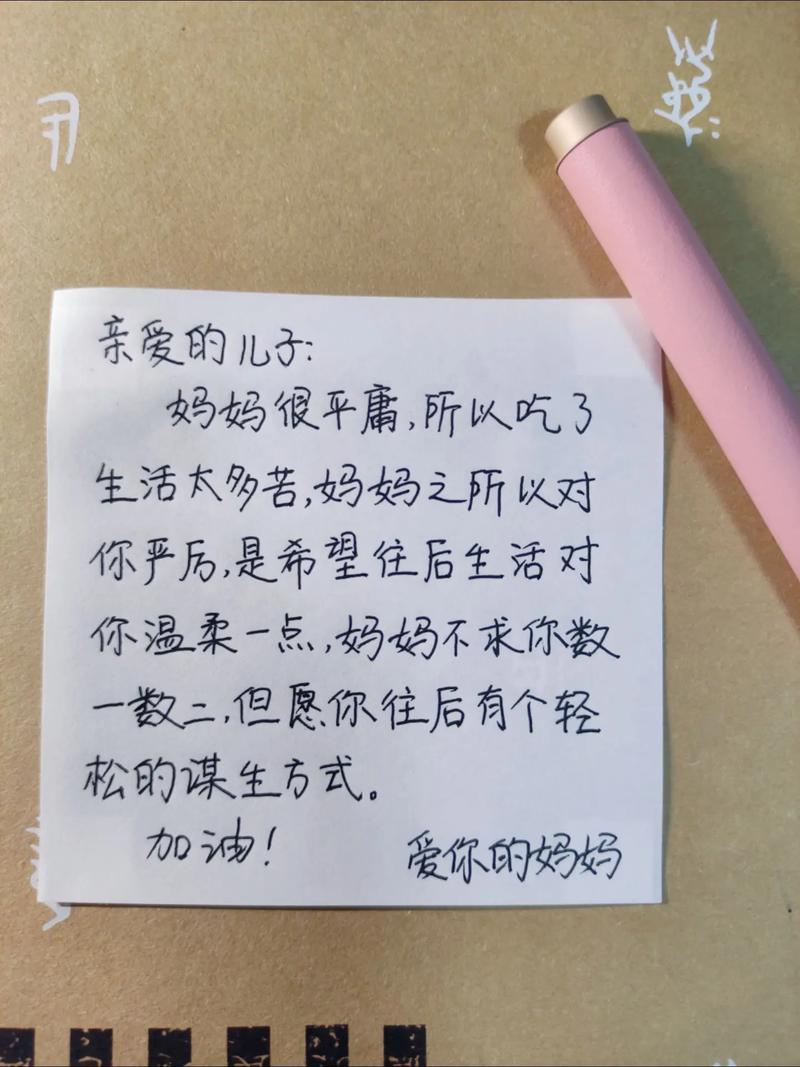 亲爱的儿子:
妈妈很平庸,所以吃了
生活太多苦,妈妈之所以对
你严厉,是希望往后生活对
你温柔一点,妈妈不求你数
一数二,但愿你往后有个轻
松的谋生方式。
加油!
爱你的妈妈